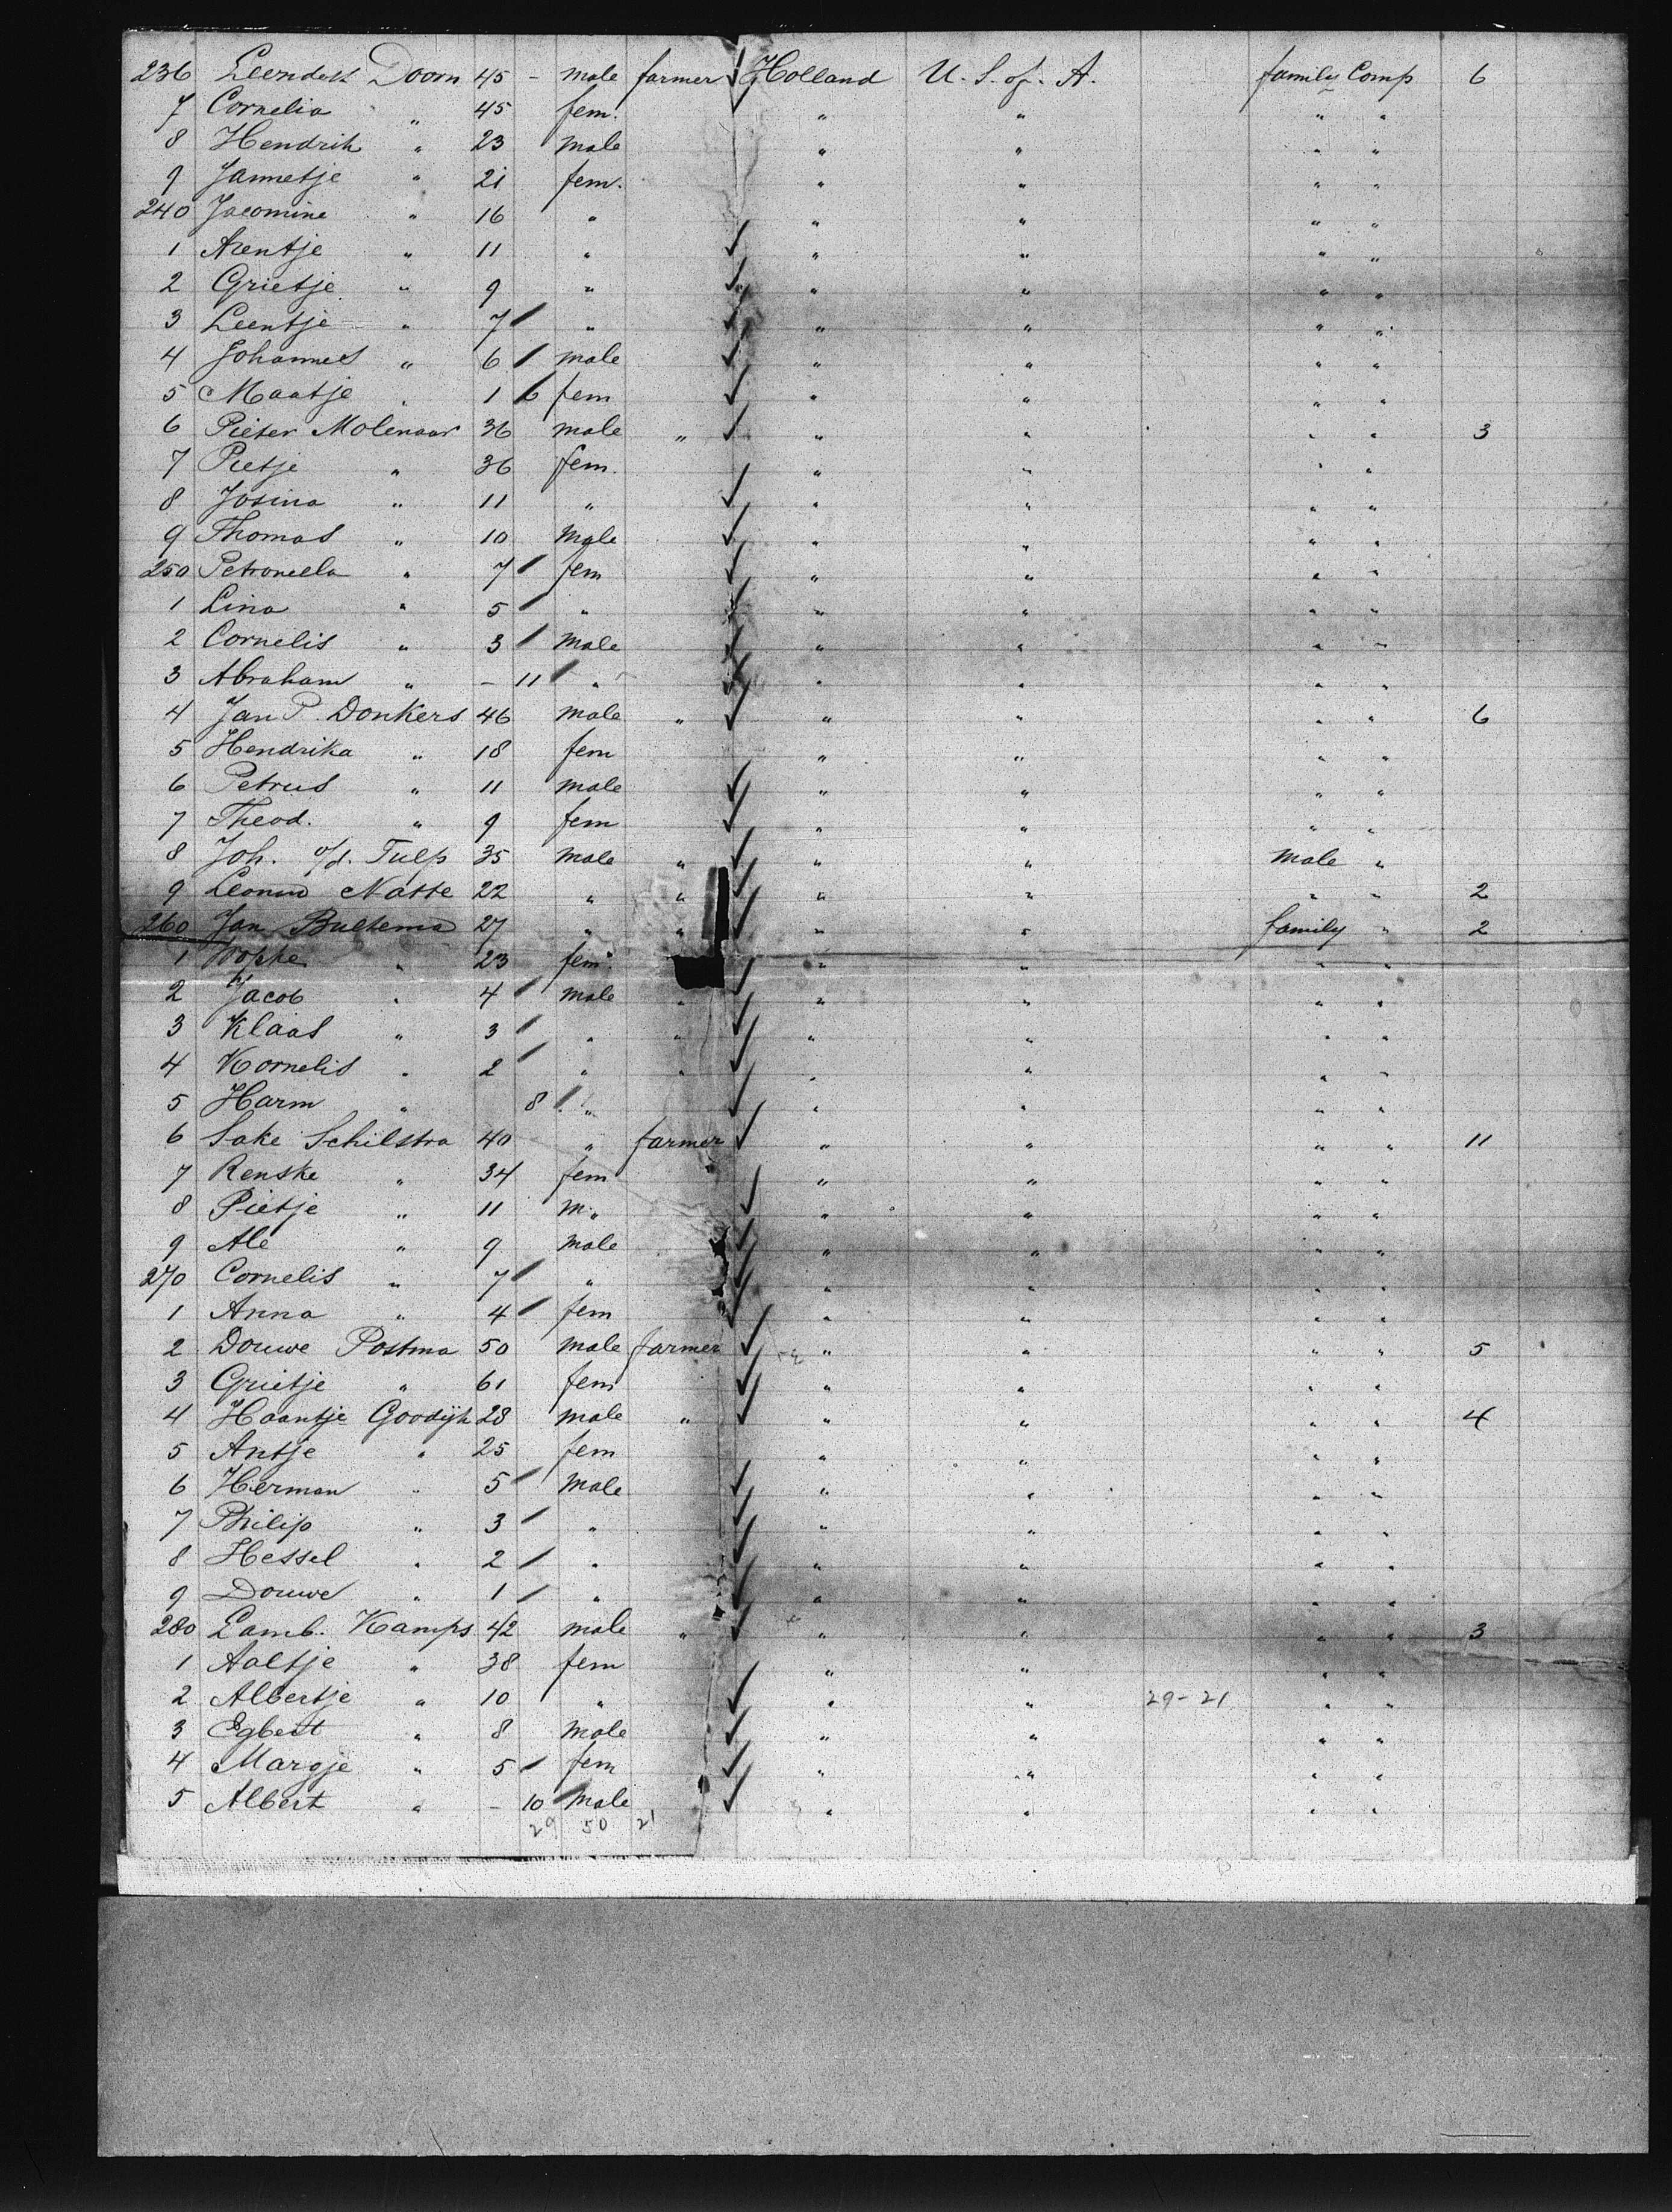 236 Leendert Doorn 45 - male farmer Holland U. S. of. A. family Comp 6
7 Cornelia " 45 fem. " " " "
8 Hendrik " 23 male " " " "
9 Jannetje " 21 fem. " " " "
240 Jacomine " 16 " " " " "
1 Arentje " 11 " " " " "
2 Grietje " 9 " " " " "
3 Leentje " 7 " " " " "
4 Johannes " 6 male " " " "
5 Maatje " 1 6 fem " " " "
6 Pieter Molenaar 36 male " " " " " 3
7 Pietje " 36 fem. " " " "
8 Josina " 11 " " " " "
9 Thomas " 10 male " " " "
250 Petroneela " 7 fem " " " "
1 Lina " 5 " " " " "
2 Cornelis " 3 male " " " "
3 Abraham " - 11 " " " " "
4 Jan P. Donkers 46 male " " " " " 6
5 Hendrika " 18 fem " " " "
6 Petrus " 11 male " " " "
7 Theod. " 9 fem " " " "
8 Joh. o/d. Tulp 35 male " " " male "
9 Natte 22 " " " " " " 2
260 Jan Bultema 27 " " " " family " 2
1 " 23 fem. " " " "
2 Jacob " 4 male " " " " "
3 Klaas " 3 " " " " " "
4 Kornelis " 2 " " " " " "
5 Harm " 8 " " " " "
6 Sake Schilstra 40 " farmer " " " " 11
7 Renske " 34 fem " " " "
8 Pietje " 11 m " " " " "
9 Ale " 9 male " " " "
270 Cornelis " 7 " " " " "
1 Anna " 4 fem " " " "
2 Douwe Postma 50 male farmer " " " " 5
3 Grietje " 61 fem " " " "
4 Haantje Goodijk 28 male " " " " " 4
5 Antje " 25 fem " " " "
6 Herman " 5 male " " " "
7 Philip " 3 " " " " "
8 Hessel " 2 " " " " "
9 Douwe " 1 " " " " "
280 Lamb. Kamps 42 male " " " " " 3
1 Aaltje " 38 fem " " " "
2 Albertje " 10 " " " 29-21 " "
3 Egbert " 8 male " " " "
4 Margje " 5 fem " " " "
5 Albert " - 10 male " " " "
29 50 21